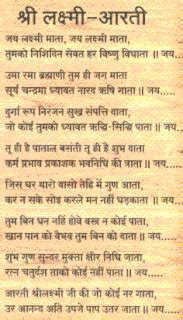 श्री लक्ष्मी-आरती
जय लक्ष्मी माता, जय लक्ष्मी माता,
तुमको निशिदिन सेवत हर विष्णु विधाता ॥ जय.....
उमा रमा ब्रह्माणी तुम ही जग माता
सूर्य चन्द्रमा ध्यावत नारद ऋषि गाता ॥ जय.....
दुर्गा रूप निरंजन सुख संपत्ति दाता,
जो कोई तुमको ध्यावत ऋद्धि-सिद्धि पाता ॥ जय.....
तू ही है पाताल बसंती तू ही है शुभ दाता
कर्म प्रभाव प्रकाशक भवनिधि की त्राता ॥ जय.....
जिस घर थारो वासो तेहि में गुण आता,
कर न सके सोइ करले मन नहीं धड़काता ॥ जय.....
तुम बिन धन नहिं होवे वस्त्र न कोई पाता,
खान पान को वैभव तुम बिन को दाता ॥ जय.....
शुभ गुण सुन्दर मुक्ता क्षीर निधि जाता,
रत्न चतुर्दश ताको कोई नहीं पाता ॥ जय.....
आरती श्रीलक्ष्मी जी की जो कोई नर गाता,
उर आनन्द अति उपजे पाप उतर जाता ॥ जय.....